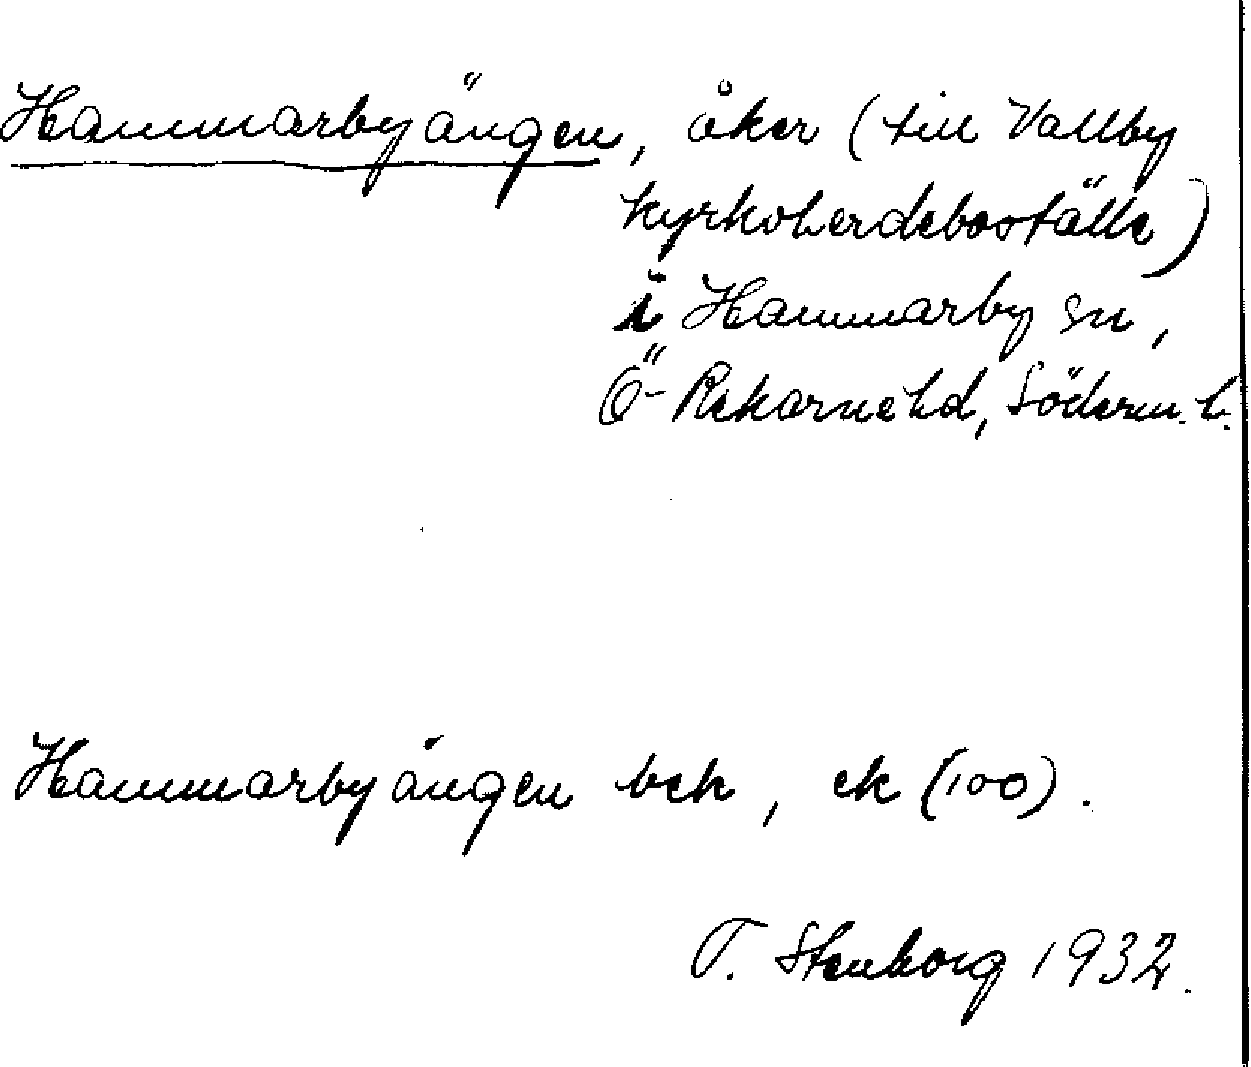 Hammarbyängen, åker (till Vallby
kyrkoherdeboställe)
i Hammarby sn,
Ö-Rekarne hd, Söderm. l.
Hammarbyängen bek, ek (100).
T. Stenborg 1932.